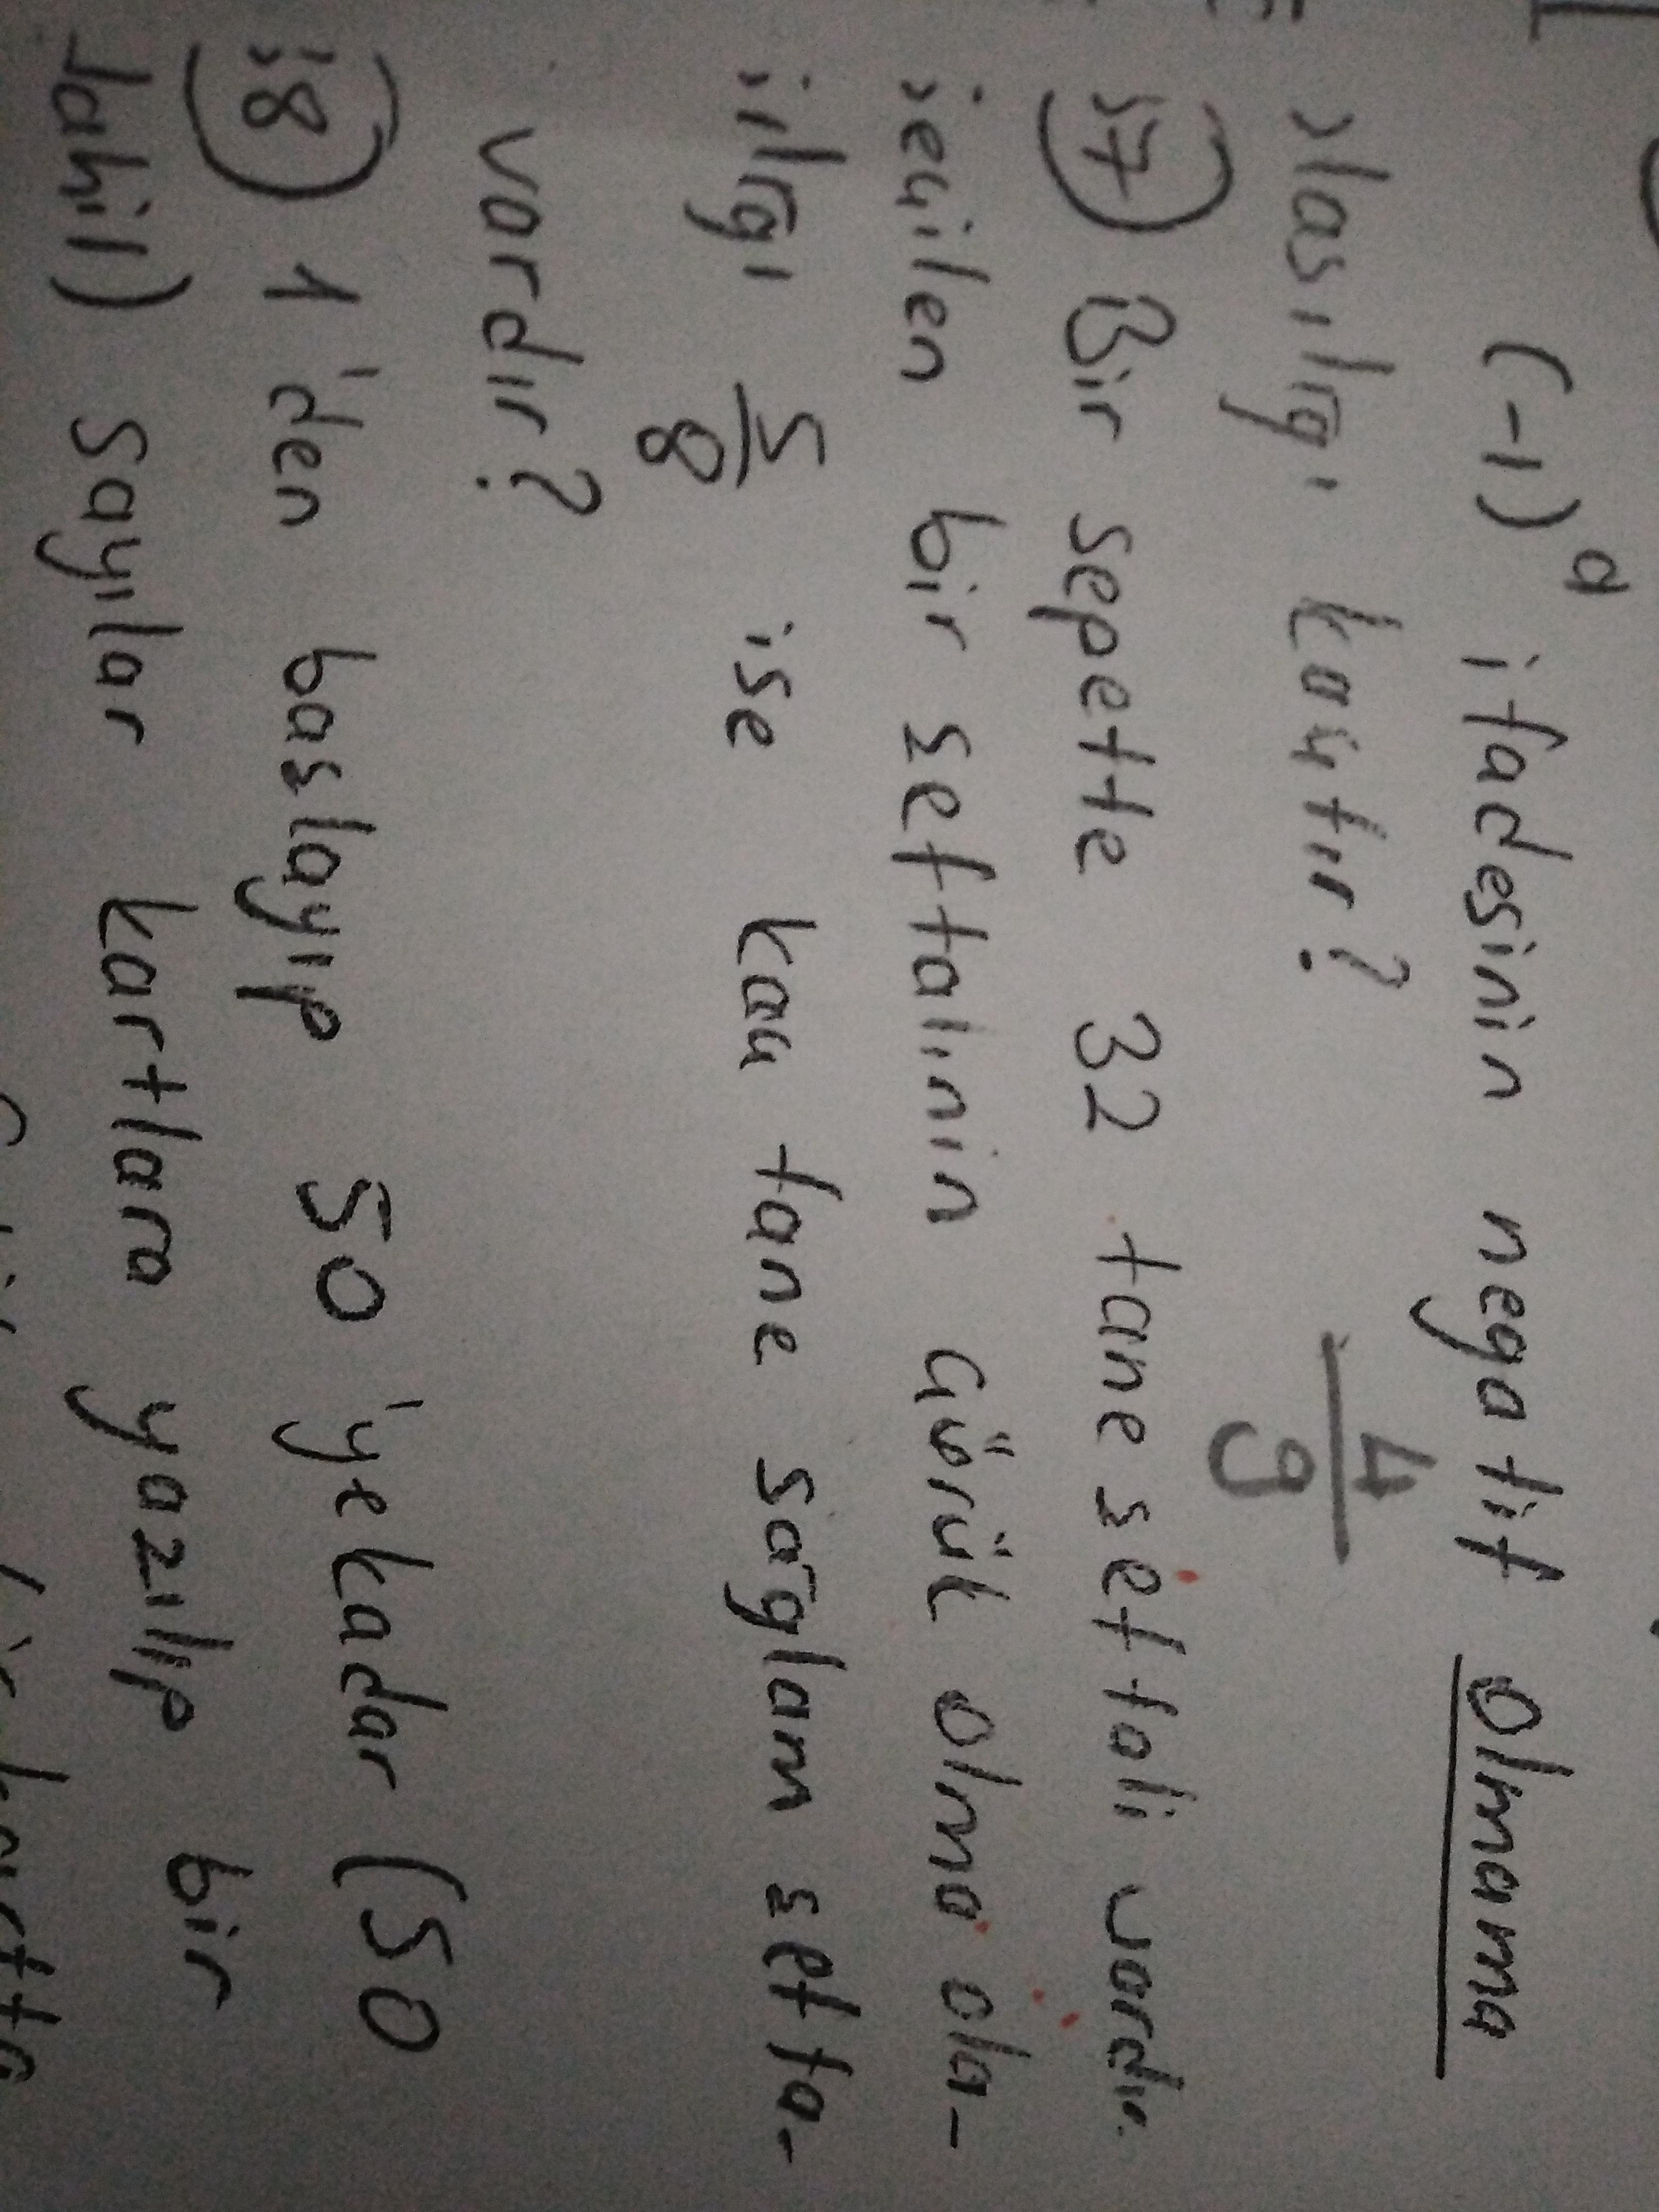 (-1)ᵃ ifadesinin negatif olmama
sılığı kaçtır? 4/9
37) Bir sepette 32 tane şeftali vardır.
seçilen bir şeftalinin çürük olma ola-
ılığı 5/8 ise kaç tane sağlam şefta-
vardır?
38) 1'den başlayıp 50'ye kadar (50
dahil) sayılar kartlara yazılıp bir